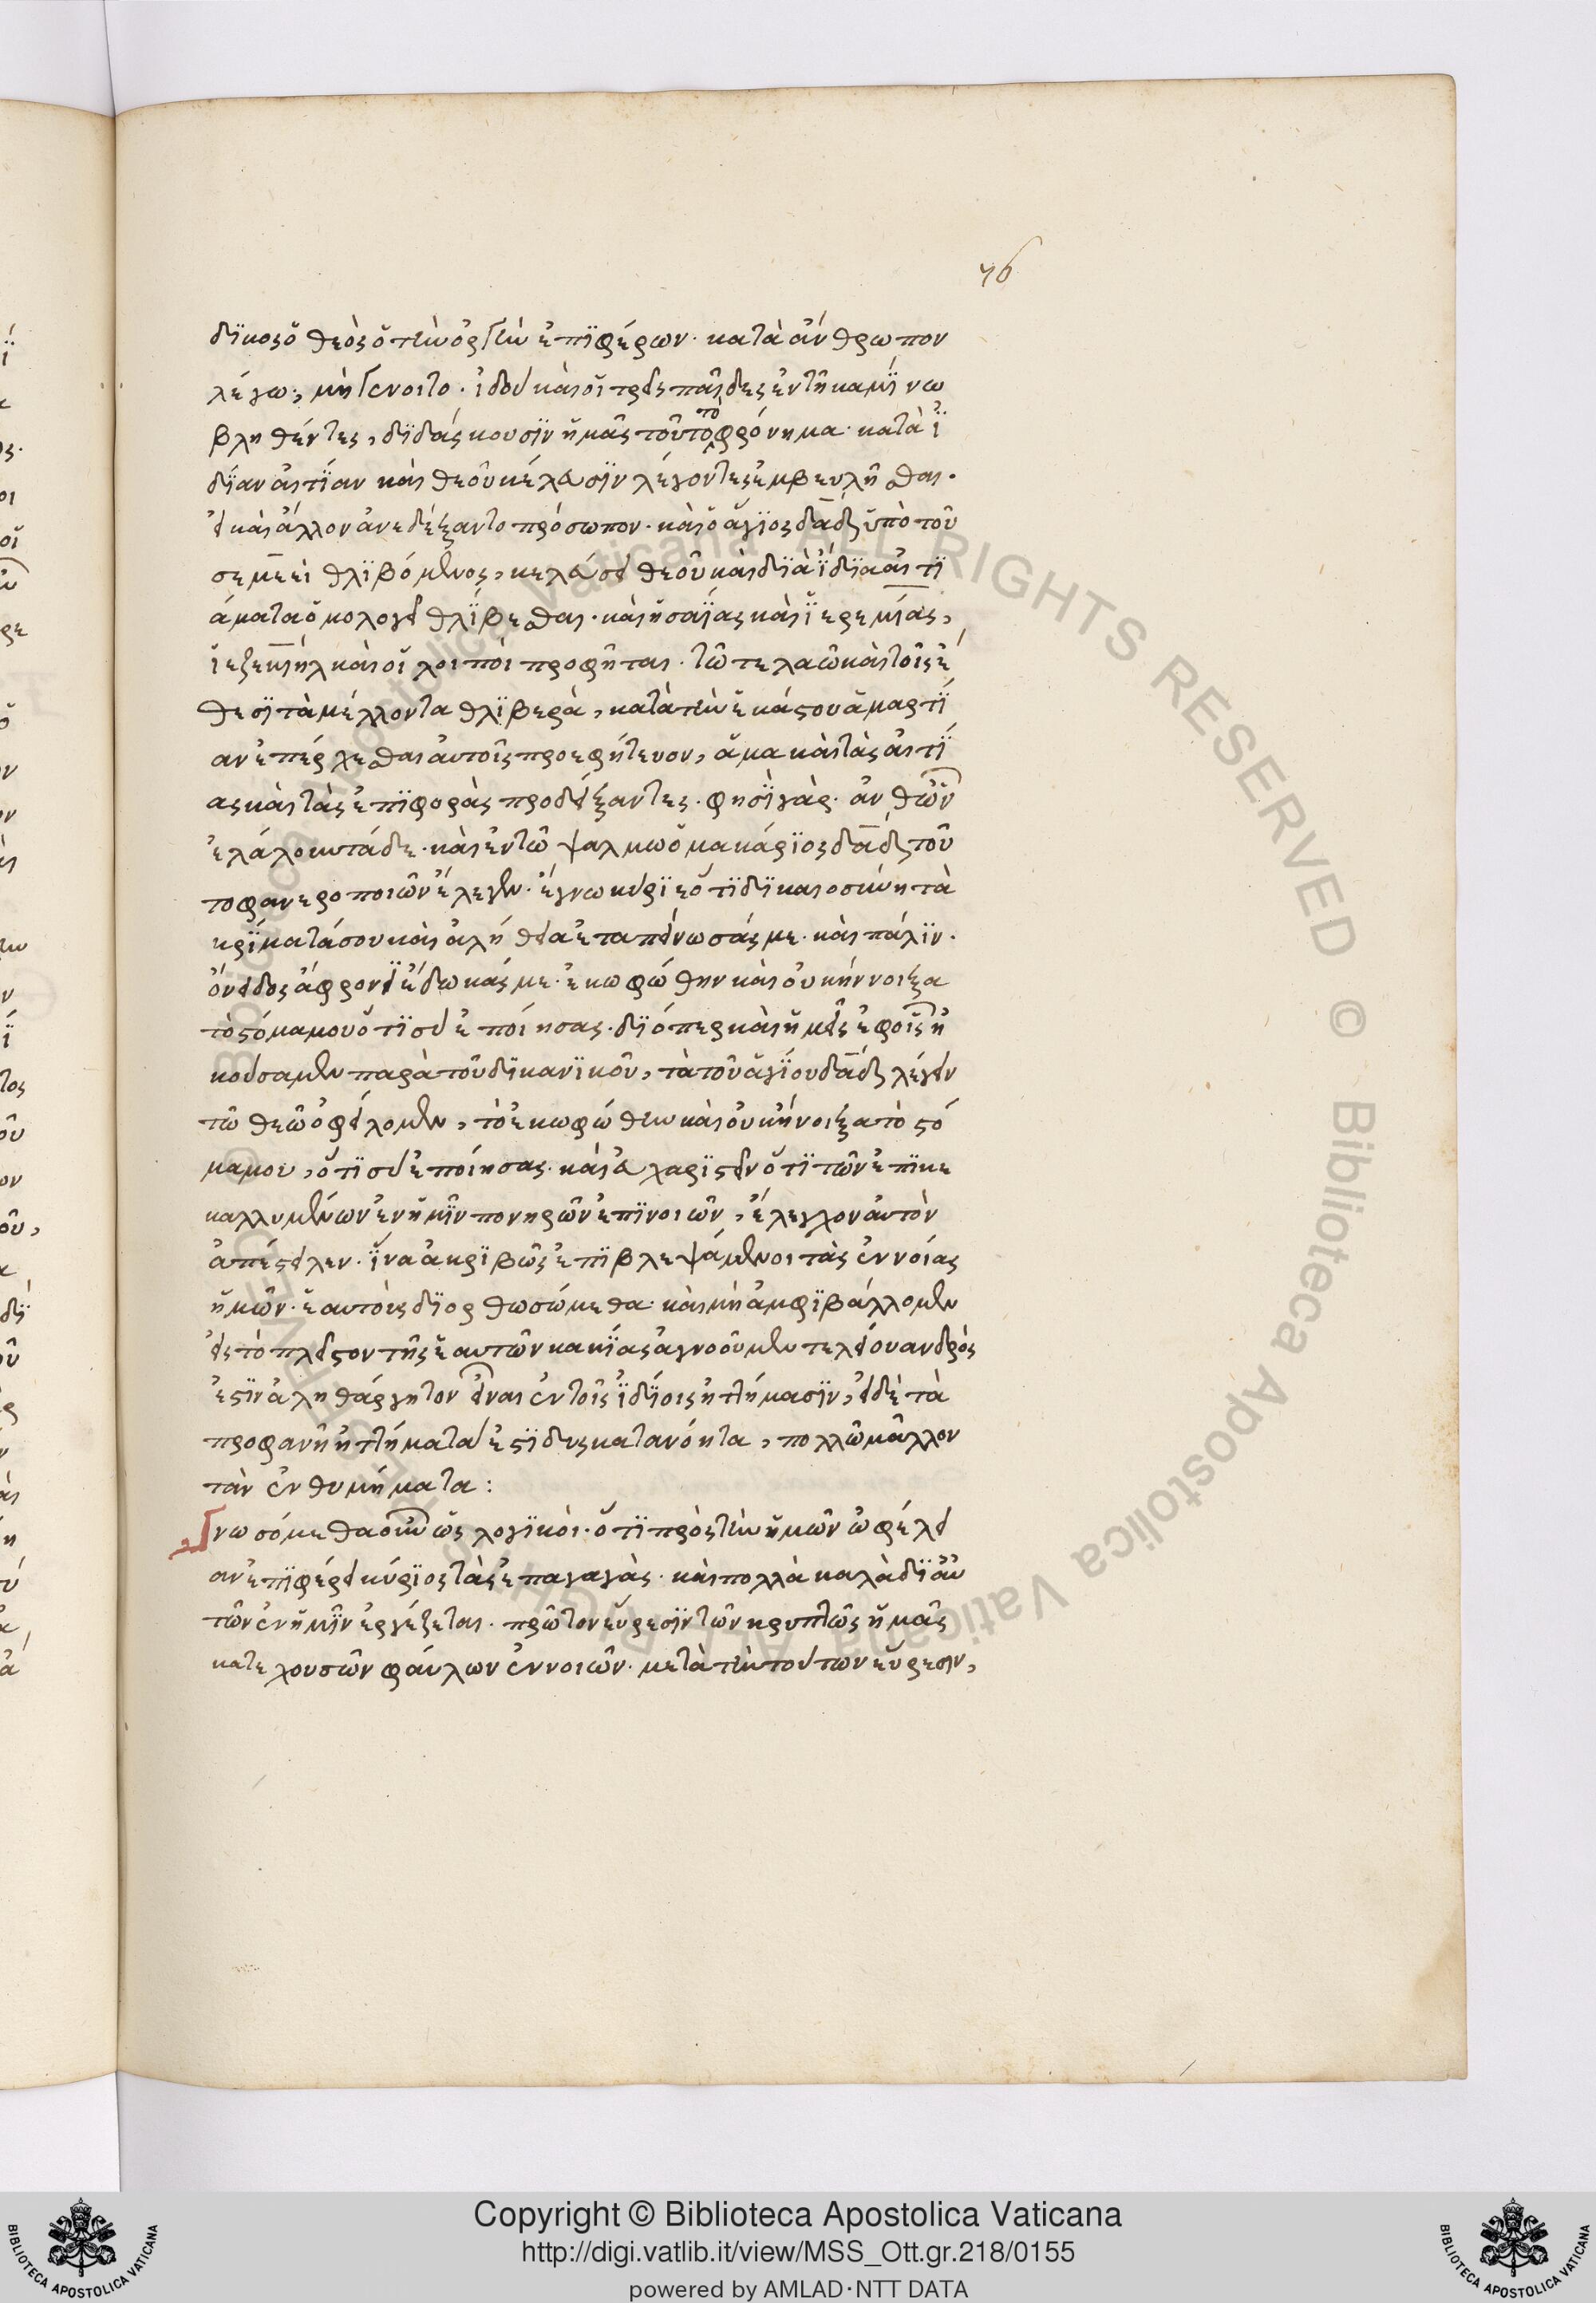 76
δϊκος ὁ θεὸς ὁ τὴν ὀργὴν ἐπϊφέρων· κατὰ ἄνθρωπον
λέγω, μὴ γένοιτο· ἰδοὺ καὶ οἱ τρεῖς παῖδες ἐν τῆ καμϊνω
βληθέντες, δϊδάσκουσϊν ἡμᾶς τοῦτο τὸ φρόνημα· κατὰ ἰ
δϊαν αἰτϊαν καὶ θεοῦ κέλευσϊν λέγοντες ἐμβευλῆσθαι·
εἰ καὶ ἄλλον ἀνεδέξαντο πρόσωπον· καὶ ὁ ἅγϊος δᾱδ ὑπὸ τοῦ
σεμεεὶ θλϊβόμενος, κελεύσει θεοῦ καὶ δϊὰ ἰδϊα αἰτϊ
άματα ὁμολογεῖ θλϊβεσθαι· καὶ ἡσαΐας καὶ ἱερεμίας,
ἰεζεκιὴλ καὶ οἱ λοιποὶ προφῆται· τῶ τε λαῶ καὶ τοῖς ἔ
θεσϊ τὰ μέλλοντα θλϊβερὰ, κατὰ τὴν ἑκάστου ἁμαρτϊ
αν ἐπέρχεσθαι αὐτοῖς προεφήτευον, ἅμα καὶ τὰς αἰτϊ
ας καὶ τὰς ἐπϊφορὰς προδείξαντες· φησϊ γάρ· ἀνθ ὧν
ἐλάλουν τάδε· καὶ ἐν τῶ ψαλμῶ ὁ μακάρϊος δᾱδ τοῦ
το φανεροποιῶν ἔλεγεν· ἔγνω κύρϊε ὅτϊ δϊκαιοσύνη τὰ
κρϊματά σου καὶ ἀλήθεια ἐταπείνωσάς με· καὶ πάλϊν·
ὄνειδος ἄφρονϊ ἔδωκάς με· ἐκωφώθην καὶ οὐκ ἤννοιξα
τὸ στόμα μου ὅτϊ σὺ ἐποίησας· δϊόπερ καὶ ἡμεῖς ἐφ οἷς ἠ
κούσαμεν παρὰ τοῦ δϊκανϊκοῦ, τὰ τοῦ ἁγϊου δᾱδ λέγειν
τῶ θεῶ ὀφείλομεν, τὸ ἐκωφώθην καὶ οὐκ ἤνοιξα τὸ στό
μα μου, ὅτϊ σὺ ἐποίησας· καὶ εὐχαρϊστεῖν ὅτϊ τῶν ἐπϊκε
καλλυμένων ἐν ἡμῖν πονηρῶν ἐπϊνοιῶν, ἔλεγχον αὐτὸν
ἀπέστειλεν· ἵνα ἀκρϊβῶς ἐπϊβλεψάμενοι τὰς ἐννοίας
ἡμῶν· ἑαυτοὺς δϊορθωσώμεθα· καὶ μὴ ἀμφϊβάλλομεν
εἰς τὸ πλεῖστον τῆς ἑαυτῶν κακϊας ἀγνοοῦμεν τελείου ανδρὸς
ἐστϊν ἀληθάργητον εἶναι ἐν τοῖς ἰδϊοις ἡττήμασϊν, εἰ δὲ τὰ
προφανῆ ἡττήματα ἐστϊ δυσκατανόητα, πολλῶ μᾶλλον
τὰν ἐνθυμήματα:
Γνωσόμεθα οὖν ὡς λογϊκοὶ· ὅτϊ πρὸς τὴν ἡμῶν ὠφέλει
αν ἐπϊφέρει κύρϊος τὰς ἐπαγαγὰς· καὶ πολλὰ καλὰ δϊ αὐ
τῶν ἐν ἡμῖν ἐργάζεται· πρῶτον εὕρεσϊν τῶν κρυπτῶς ἡμᾶς
κατεχουσῶν φαύλων ἐννοιῶν· μετὰ τὴν τούτων εὕρεσιν,
Copyright © Biblioteca Apostolica Vaticana
http://digi.vatlib.it/view/MSS_Ott.gr.218/0155
powered by AMLAD·NTT DATA